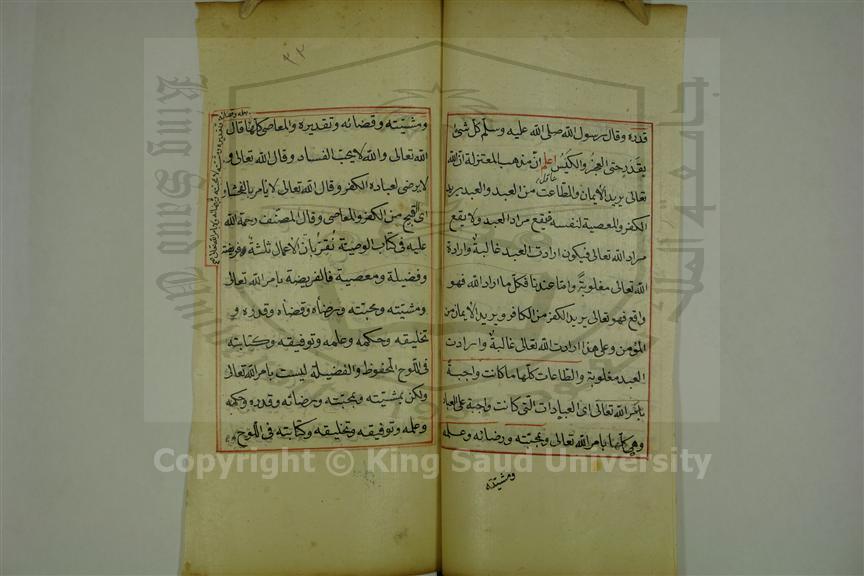 قدره وقال رسول الله صلى الله عليه وسلم كل شئ
بقدر حتى العجز والكيس اعلم ان مذهب المعتزلة ان الله
تعالى يريد الايمان والطاعت من العبد والعبد يريد
الكفر والمعصية لنفسه فيقع مراد العبد ولا يقع
مراد الله تعالى فيكون ارادت العبد غالبة وارادة
الله تعالى مغلوبة واما عندنا فكل ما اراد الله فهو
واقع فهو تعالى يريد الكفر من الكافر ويريد الايمان من
المؤمن وعلى هذا ارادت الله تعالى غالبة وارادت
العبد مغلوبة والطاعات كلها ما كانت واجبة
بامر الله تعالى اى العبادات التى كانت واجبة على العباد
وهى كلها بامر الله تعالى وبمحبته ورضائه وعلمه
ومشيته
٣٢
ومشيته وقضائه وتقديره والمعاصى كلها قال
الله تعالى والله لا يحب الفساد وقال الله تعالى و
لا يرضى لعباده الكفر وقال الله تعالى لا يامر بالفحشاء
اى القبيح من الكفر والمعاصى وقال المصنف رحمة الله
عليه فى كتاب الوصية نقر بان الاعمال ثلثة فريضة
وفضيلة ومعصية فالفريضة بامر الله تعالى
ومشيته ومحبته ورضاه وقضاه وقدره و
تخليقه وحكمه وعلمه وتوفيقه وكتابته
فى اللوح المحفوظ والفضيلة ليست بامر الله تعالى
ولكن بمشيته وبمحبته ورضائه وقدره وحكمه
وعلمه وتوفيقه وتخليقه وكتابته فى اللوح
Copyright © King Saud University
King Saud University
1957